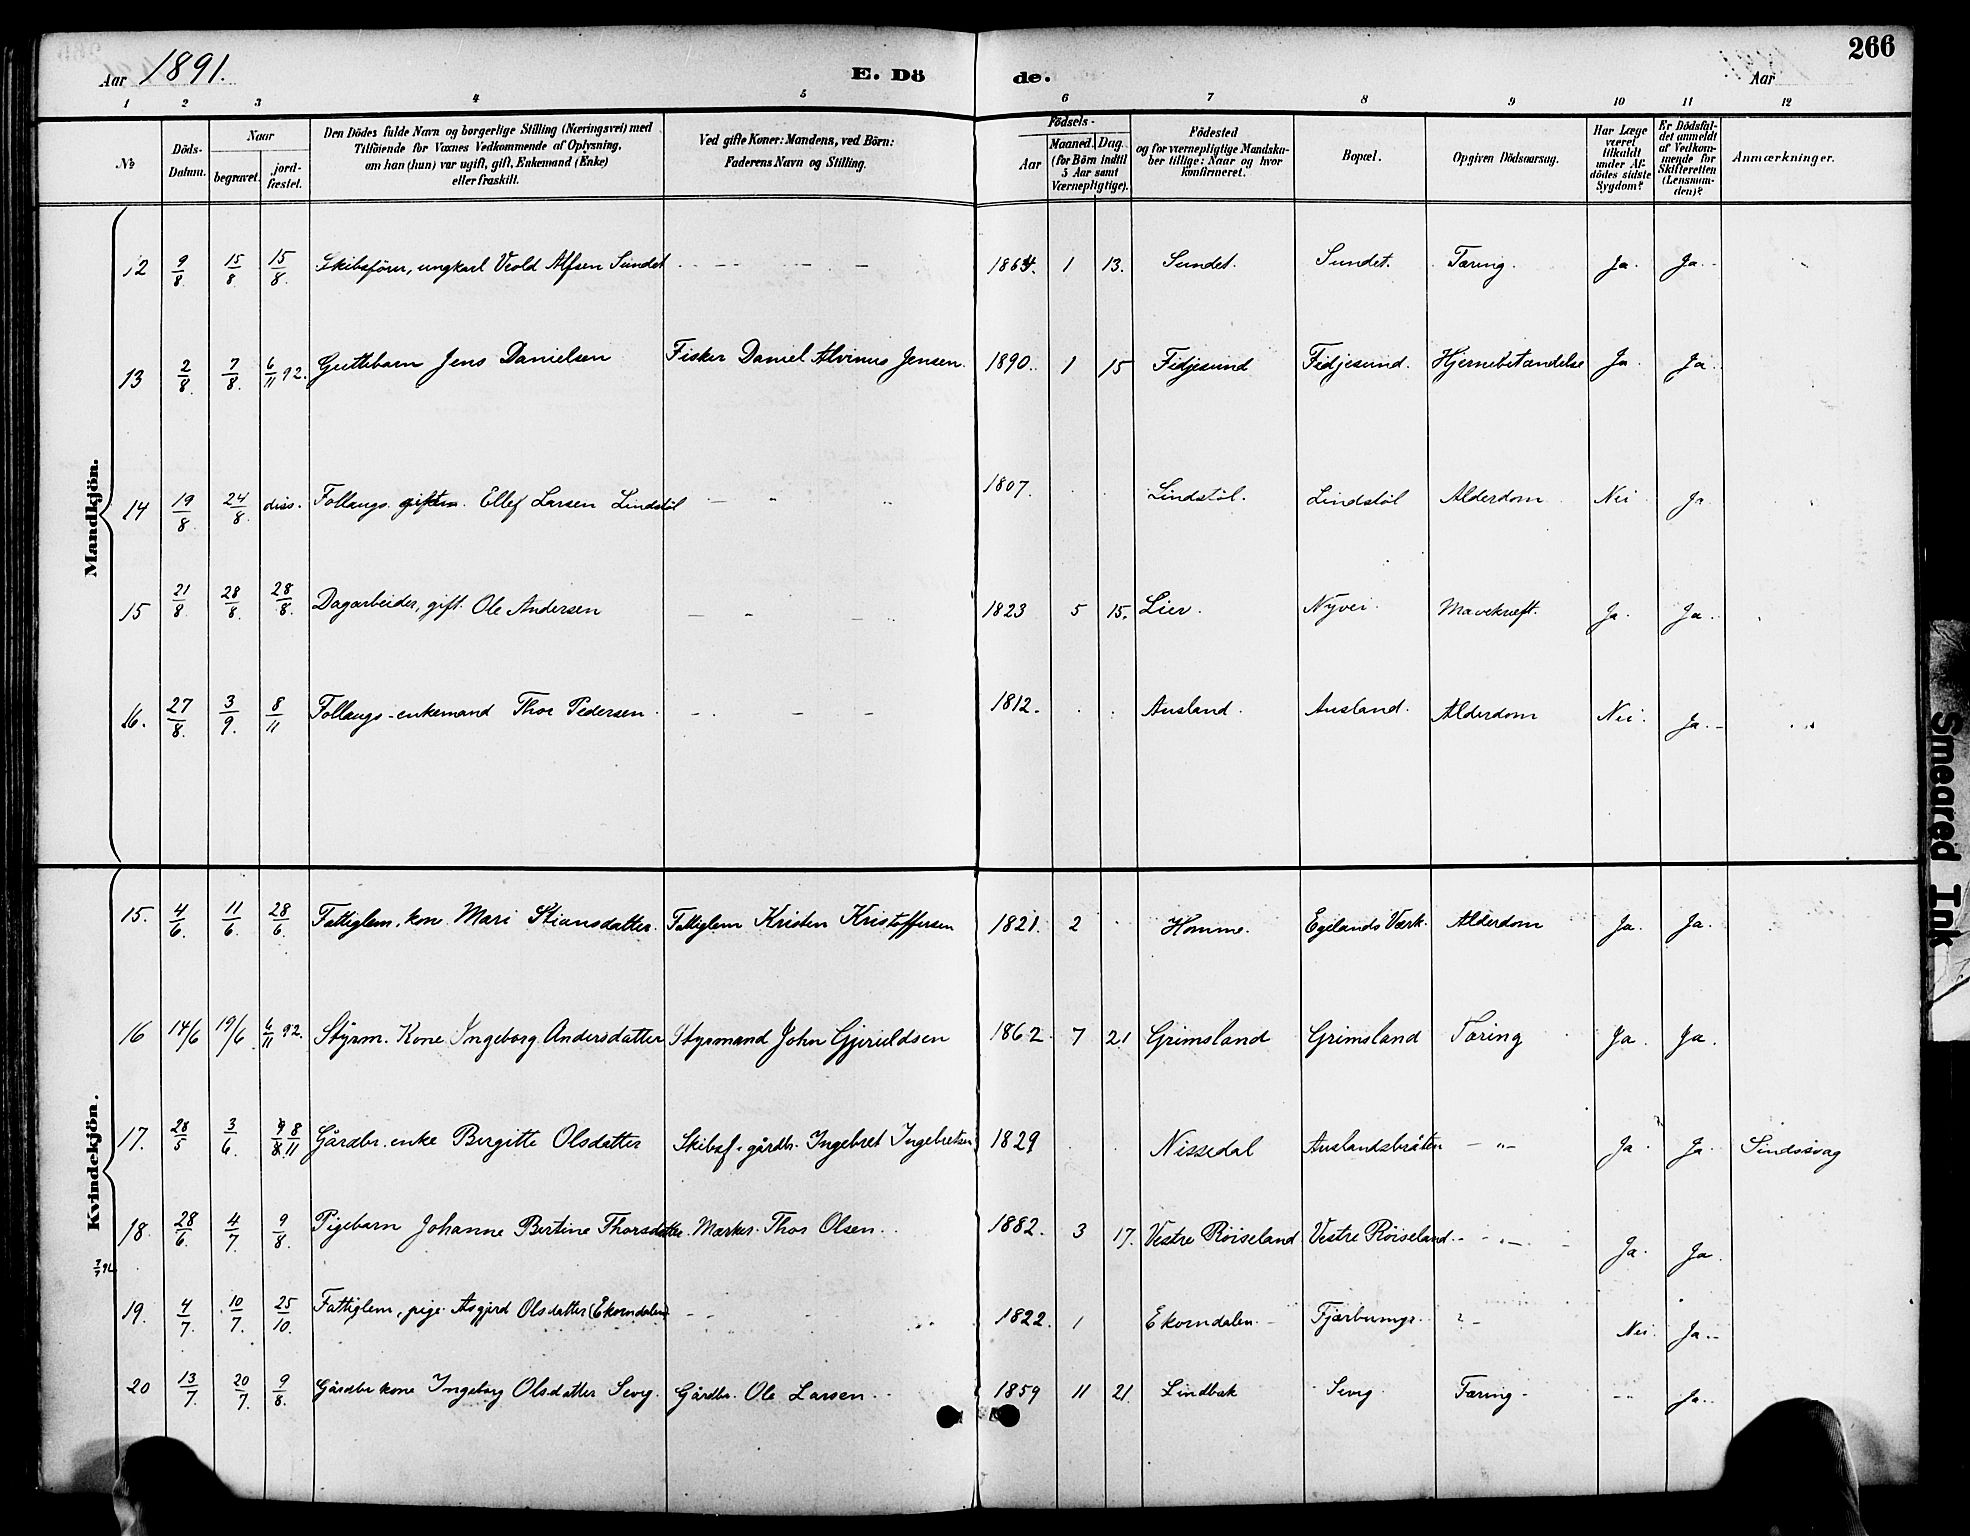 Aar 1891.
E. Dö
de.
Aar
266
1 2 3 4 5 6 7 8 9 10 11 12
No
Döds-Datum.
Naar
begravet.
jord-fæstet.
Den Dödes fulde Navn og borgerlige Stilling (Næringsvei) med
Tilföiende for Voxnes Vedkommende af Oplysning,
om han (hun) var ugift, gift, Enkemand (Enke)
eller fraskilt.
Ved gifte Koner: Mandens, ved Börn:
Faderens Navn og Stilling.
Födsels-
Aar
Maaned. Dag.
(for Börn indtil
5 Aar samt
Værnepligtige).
Födested
og for værnepligtige Mandska-
ber tillige: Naar og hvor
konfirmeret.
Bopæl.
Opgiven Dödsaarsag.
Har Læge
været
tilkaldt
under Af-
dödes sidste
Sygdom?
Er Dödsfal-
det anmeldt
af Vedkom-
mende for
Skifteretten
(Lensman-
den)?
Anmærkninger.
Mandkjön.
12 9/8 15/8 15/8. Skibsförer, ungkarl Veold Alfsen Sundet - - - - 1864. 1 13. Sundet. Sundet. Tæring. Ja. Ja.
13 2/8. 7/8. 6/11 92. Guttebarn Jens Danielsen Fisker Daniel Alvinus Jensen. 1890. 1 15 Fidjesund Fidjesund. Hjernebetændelse Ja. Ja.
14 19/8. 24/8. diss. Follaugs. giftm. Ellef Larsen Lindstöl - " " 1807. Lindstöl. Lindstöl Alderdom Nei Ja
15 21/8 28/8. 28/8. Dagarbeider, gift. Ole Andersen - - - 1823 5 15. Lier. Nyvei. Mavekræft. Ja. Ja.
16. 27/8. 3/9. 8/11 Follaugs-enkemand Thor Pedersen. - - - 1812. Ausland. Ausland. Alderdom Nei. Ja.
Kvindekjön.
15. 4/6 11/6 28/6. Fattiglem, kone Mari Stiansdatter. Fattiglem Kristen Kristoffersen 1821. 2 Homme. Egelands Værk. Alderdom Ja. Ja.
16 14/6 19/6 6/11 92. Styrm. Kone Ingeborg Andersdatter Styrmand John Gjeruldsen 1862. 7 21 Grimsland Grimsland Tæring Ja. Ja.
17. 28/5 3/6. 9/8 8/11 Gårdbr. enke Birgitte Olsdatter Skibsf. gårdbr. Ingebret Ingebretsen 1829 Nissedal Auslandsbråten - " - Ja Ja Sindssvag
18. 28/6. 4/7. 9/8. Pigebarn Johanne Bertine Thorsdatter Thor Olsen. 1882. 3 17. Vestre Röiseland Vestre Röiseland - " - Ja. Ja.
19. 4/7. 10/7. 25/10. Fattiglem, pige Asgjerd Olsdatter (Ekorndalen) - - 1822. 1 Ekorndalen. ? - Nei. Ja.
20 13/7. 20/7. 9/8. Gårdbr kone Ingeborg Olsdatter Sevg. Gårdbr. Ole Larsen. 1859 11 21. Lindbæk Sevg. Tæring - - - Ja.
Smeared Ink